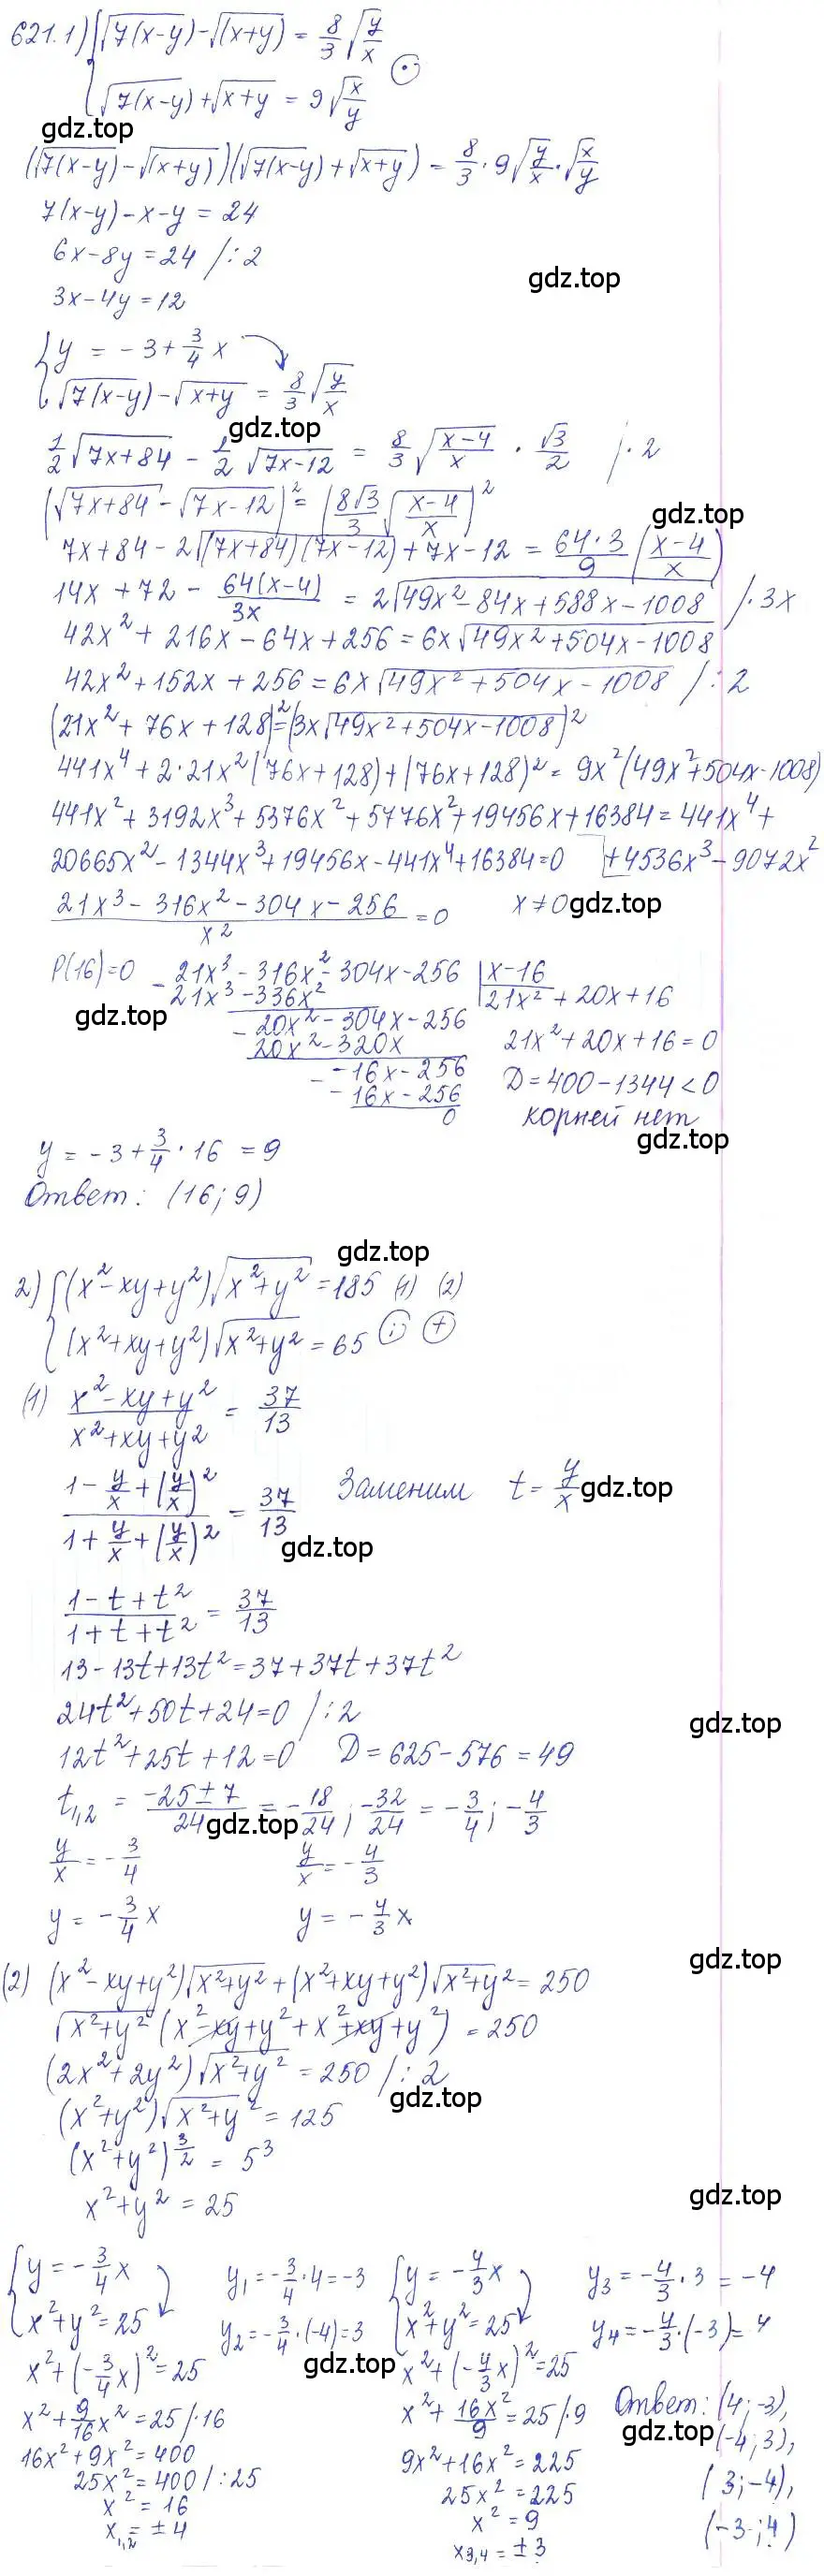 621.1) { √7(x-y) - √(x+y) = 8/3 √y/x
√7(x-y) + √x+y = 9√x/y ⊙
gdz.top
(√7(x-y) - √(x+y))(√7(x-y) + √x+y) = 8/3 · 9√y/x · √x/y
7(x-y) - x - y = 24
6x - 8y = 24 /:2
gdz.top
3x - 4y = 12
{ y = -3 + 3/4 x
√7(x-y) - √x+y = 8/3 √y/x
gdz.top
1/2 √7x+84 - 1/2 √7x-12 = 8/3 √x-4/x · √3/2 /·2
(√7x+84 - √7x-12)² = (8√3/3 √x-4/x)²
gdz.top
7x+84 - 2√(7x+84)(7x-12) + 7x-12 = 64·3/9 (x-4/x)
14x + 72 - 64(x-4)/3x = 2√49x²-84x+588x-1008 /·3x
42x² + 216x - 64x + 256 = 6x√49x²+504x-1008
42x² + 152x + 256 = 6x√49x²+504x-1008 /:2
(21x² + 76x + 128)² = (3x√49x²+504x-1008)²
441x⁴ + 2·21x²(76x+128) + (76x+128)² = 9x²(49x²+504x-1008)
441x² + 3192x³ + 5376x² + 5776x² + 19456x + 16384 = 441x⁴ +
20665x² - 1344x³ + 19456x - 441x⁴ + 16384 = 0 + 4536x³ - 9072x²
21x³ - 316x² - 304x - 256 / x² = 0 x ≠ 0
gdz.top
P(16)=0 - 21x³ - 316x² - 304x - 256 | x-16
21x³ - 336x² 21x² + 20x + 16
gdz.top
- 20x² - 304x - 256
20x² - 320x 21x² + 20x + 16 = 0
- -16x - 256 D = 400 - 1344 < 0
-16x - 256
0 корней нет
gdz.top
y = -3 + 3/4 · 16 = 9
Ответ: (16; 9)
gdz.top
2) { (x² - xy + y²)√x²+y² = 185 (1) (2)
(x² + xy + y²)√x²+y² = 65 (:) (+)
(1) x² - xy + y² / x² + xy + y² = 37/13
1 - y/x + (y/x)² / 1 + y/x + (y/x)² = 37/13 Заменим t = y/x
gdz.top
gdz.top
1 - t + t² / 1 + t + t² = 37/13
13 - 13t + 13t² = 37 + 37t + 37t²
24t² + 50t + 24 = 0 /:2
gdz.top
12t² + 25t + 12 = 0 D = 625 - 576 = 49
t₁,₂ = -25 ± 7 / 24 = -18/24; -32/24 = -3/4; -4/3
gdz.top
y/x = -3/4 y/x = -4/3
y = -3/4 x y = -4/3 x
gdz.top
(2) (x² - xy + y²)√x²+y² + (x² + xy + y²)√x²+y² = 250
√x²+y² (x² - xy + y² + x² + xy + y²) = 250
(2x² + 2y²)√x²+y² = 250 /:2
gdz.top
(x² + y²)√x²+y² = 125
(x² + y²)^3/2 = 5³
x² + y² = 25
gdz.top
{ y = -3/4 x y₁ = -3/4 · 4 = -3 { y = -4/3 x y₃ = -4/3 · 3 = -4
x² + y² = 25 y₂ = -3/4 · (-4) = 3 x² + y² = 25 y₄ = -4/3 · (-3) = 4
gdz.top
x² + (-3/4 x)² = 25 x² + (-4/3 x)² = 25
x² + 9/16 x² = 25 /·16 x² + 16x²/9 = 25 /·9 Ответ: (4; -3),
gdz.top
16x² + 9x² = 400 9x² + 16x² = 225 (-4; 3),
25x² = 400 /:25 25x² = 225 (3; -4),
x² = 16 x² = 9 (-3; 4)
x₁,₂ = ±4 x₃,₄ = ±3